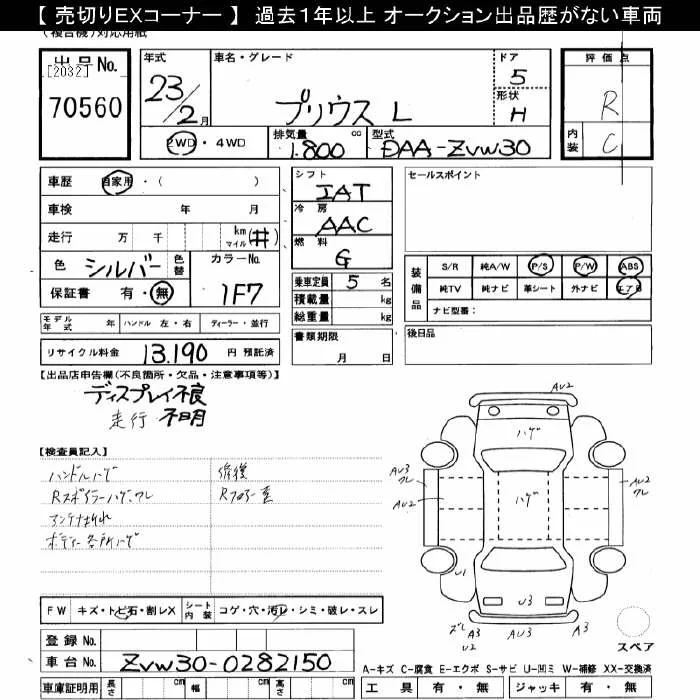 【 売切りEXコーナー 】 過去1年以上 オークション出品歴がない車両
(複合機)対応用紙
出品No.
[2032]
70560
年式
23/2月
車名・グレード
プリウス L
ドア
5
形状
H
2WD ・ 4WD
排気量 cc
1.800
型式
DAA-ZVW30
評価点
R
内装
C
車歴 自家用・( )
車検 年 月
走行 万 千 km マイル (#)
色 シルバー 色替
カラーNo.
1F7
保証書 有・無
シフト
IAT
冷房
AAC
燃料
G
乗車定員 5 名
積載量 kg
総重量 kg
セールスポイント
装備品
S/R 純A/W P/S P/W ABS
純TV 純ナビ 革シート 外ナビ エアB
ナビ型番:
モデル年式 年 ハンドル 左・右 ディーラー・並行
リサイクル料金 13.190 円 預託済
書類期限
月 日
後日品
【出品店申告欄(不良箇所・欠品・注意事項等)】
ディスプレイ不良
走行 不明
【検査員記入】
ハンドルハゲ
Rスポイラーハゲ、ワレ
アンテナ折れ
ボディー各所ハゲ
修復
Rフロアー歪
AU2
ハゲ
AU3
ワレ
AU2
ハゲ
AU3
ワレ
AU2
U1
U3
ズレ A3
U2
AU3
A3
スペア
FW キズ・トビ石・割レX シート内装 コゲ・穴・汚レ・シミ・破レ・スレ
登録 No.
車台 No. ZVW30-0282150
車庫証明用 長さ cm 幅 cm 高さ cm
A-キズ C-腐食 E-エクボ S-サビ U-凹ミ W-補修 XX-交換済
工具 有・無 ジャッキ 有・無